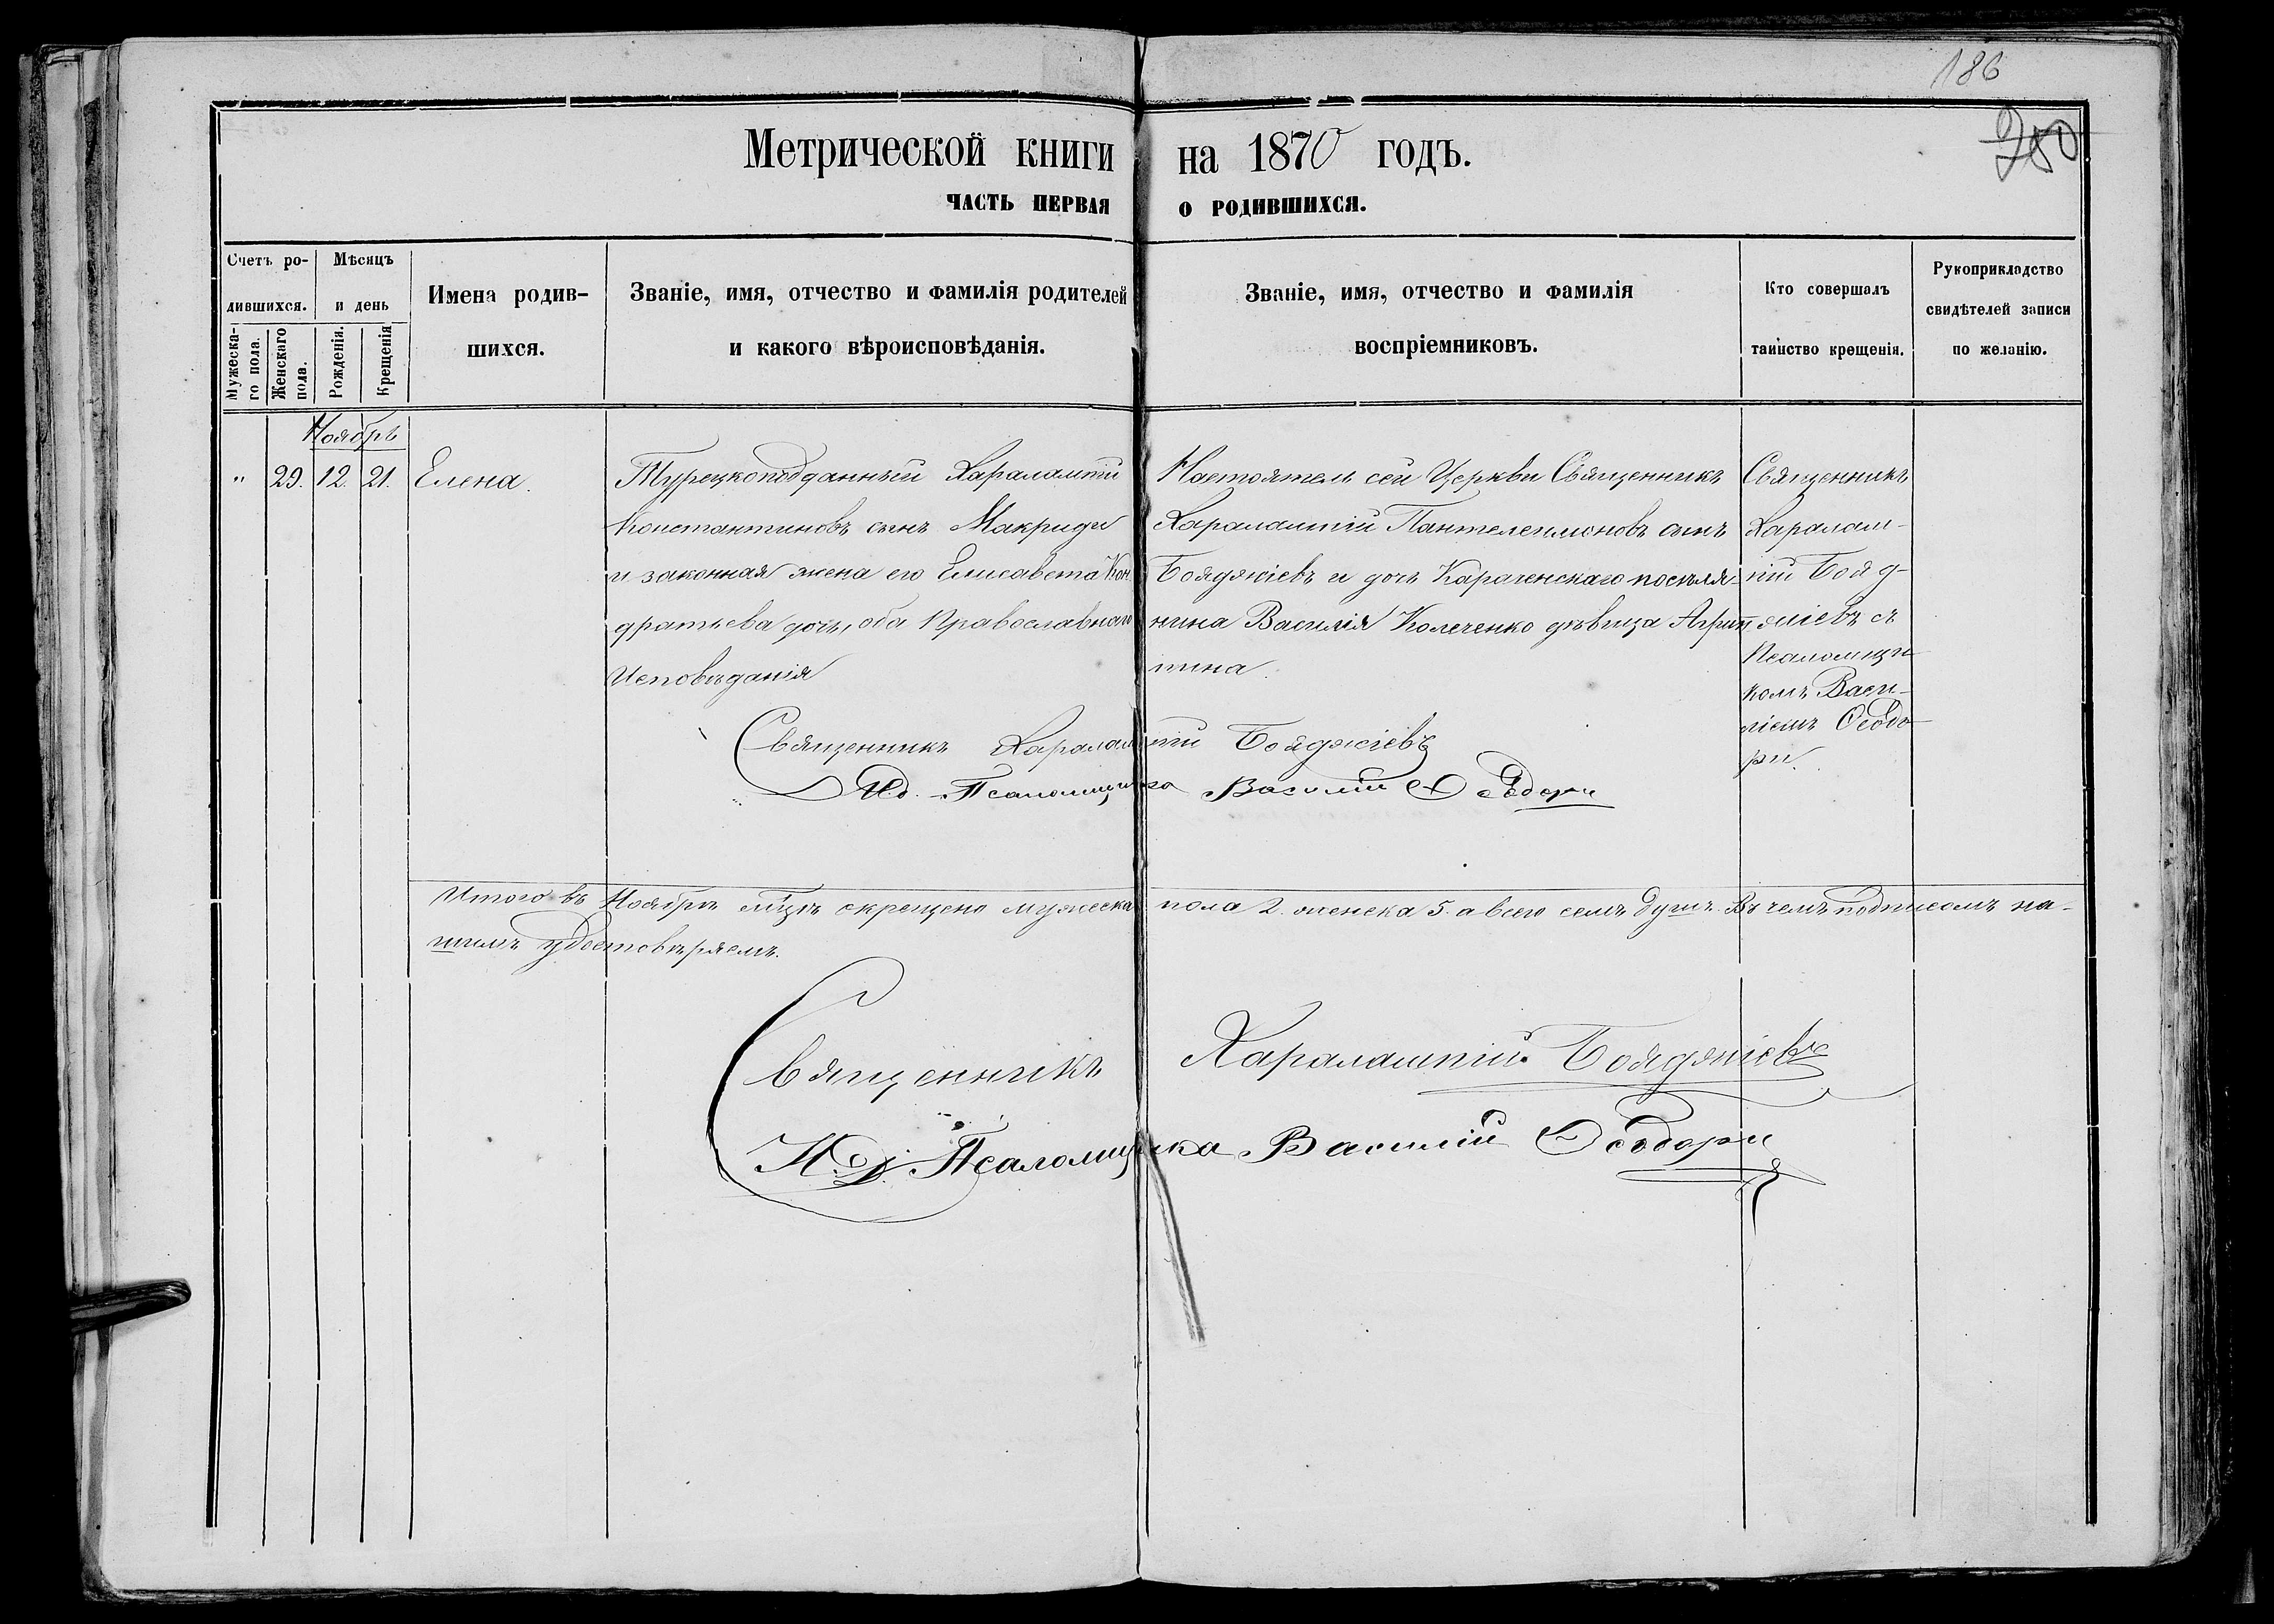 186
280
Метрической книги на 1870 годъ.
ЧАСТЬ ПЕРВАЯ О РОДИВШИХСЯ.
Счетъ ро-
дившихся.
Мужеска-
го пола.
Женскаго
пола.
Мѣсяцъ
и день
Рожденія.
Крещенія
Имена родив-
шихся.
Званіе, имя, отчество и фамилія родителей
и какого вѣроисповѣданія.
Званіе, имя, отчество и фамилія
воспріемниковъ.
Кто совершалъ
таинство крещенія.
Рукоприкладство
свидѣтелей записи
по желанію.
Ноябрь
" 29. 12. 21. Елена.
Турецкоподданный Харалампій
Константиновъ сынъ Макриди
и законная жена его Елисавета Кон
дратьева дочь, оба Православнаго
Исповѣданія
Настоятель сей Церкви Священникъ
Харалампій Пантелеимоновъ сынъ
Бояджіевъ и дочь Карагенскаго поселя-
нина Василія Колеченко дѣвица Агрип
пина.
Священникъ
Харалам-
пій Бояд-
жіевъ съ
Псаломщи-
комъ Васи-
ліемъ Ѳеодо-
ри.
Священникъ Харалампій Бояджіевъ
И.д. Псаломщика Василій Ѳеодори
Итого въ Ноябрѣ мѣцѣ окрещено мужеска пола 2. женска 5. а всего семь душъ. Въ чемъ подписомъ на-
шимъ удостовѣряемъ.
Священникъ Харалампій Бояджіевъ
И.Д. Псаломщика Василій Ѳеодори